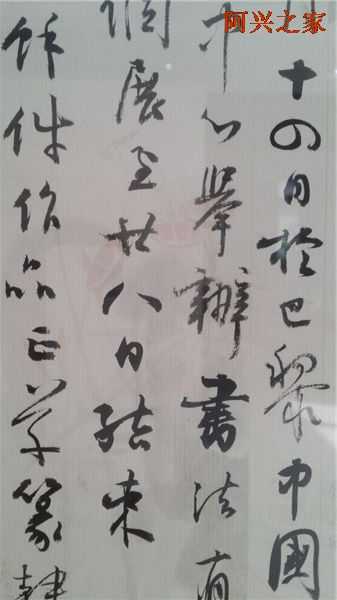 阿兴之家
十四日於巴黎中國
中心舉辦書法
個展至廿八日結束
餘件作品正草篆隸